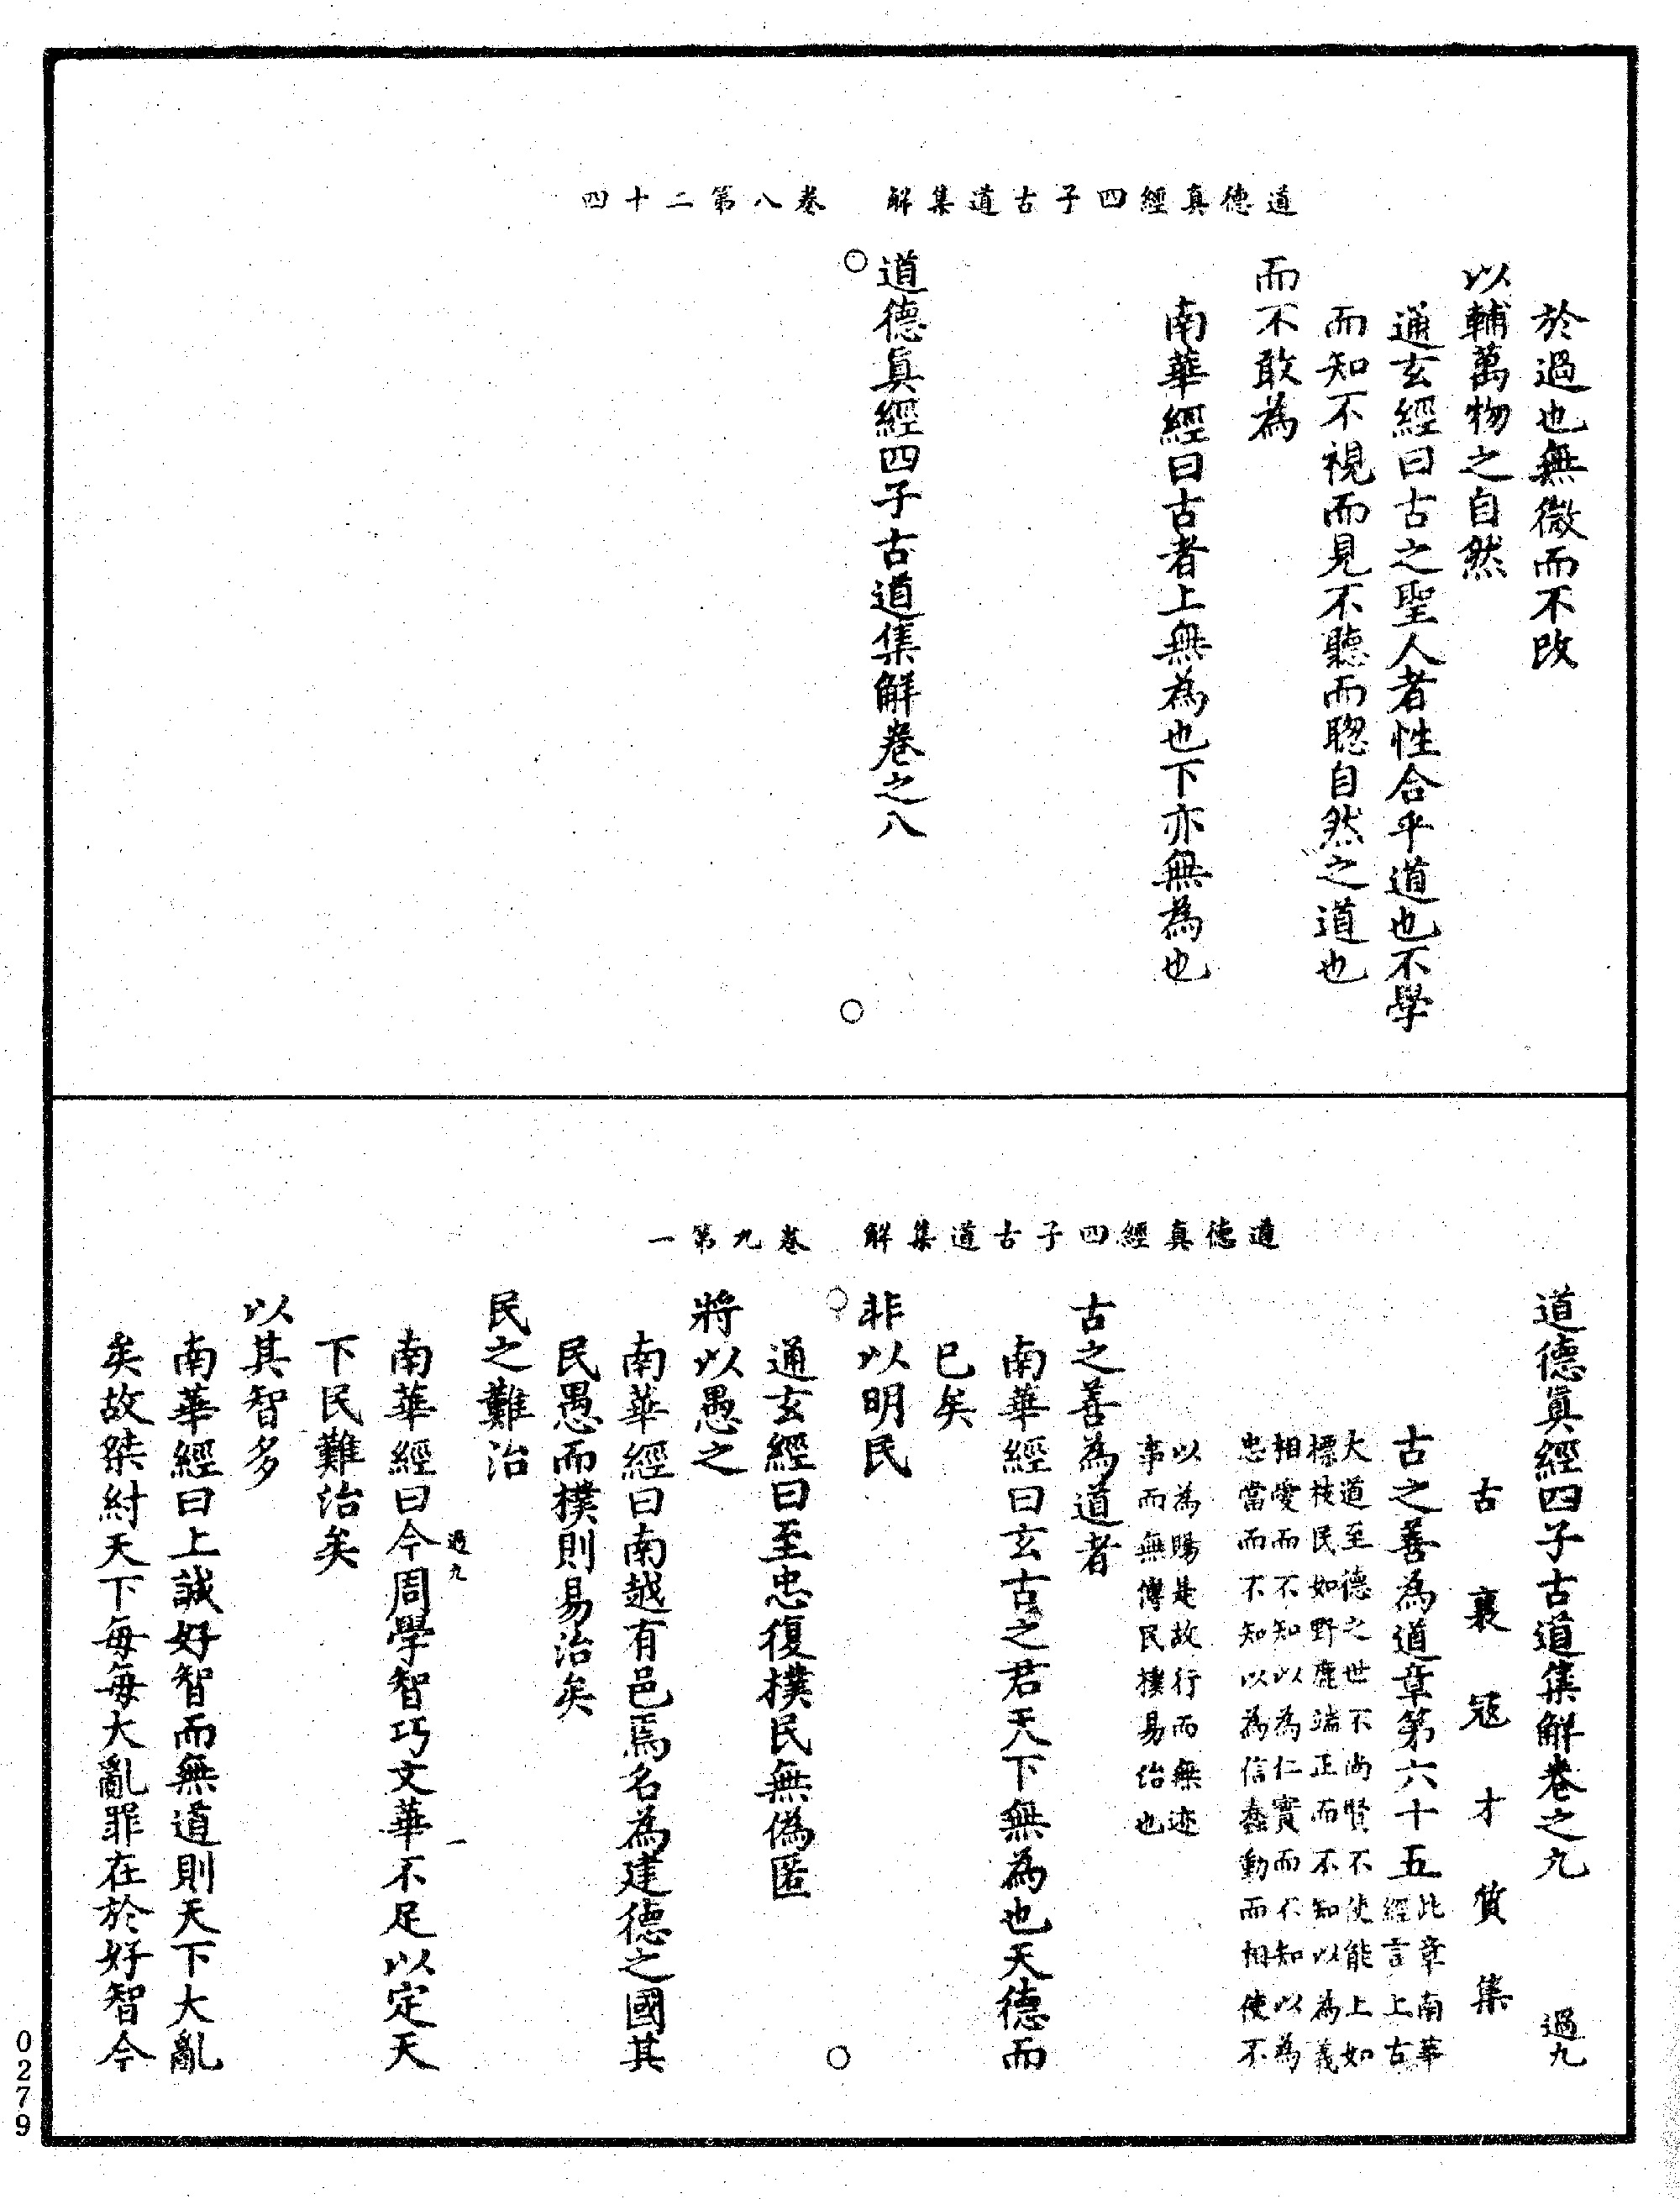 道德真經四子古道集解　卷八第二十四
於過也無微而不改
以輔萬物之自然
通玄經曰古之聖人者性合乎道也不學
而知不視而見不聽而聦自然之道也
而不敢為
南華經曰古者上無為也下亦無為也
道德眞經四子古道集解卷之八
道德真經四子古道集解　卷九第一
道德眞經四子古道集解卷之九　過九
古襄寇才質集
古之善為道章第六十五此章南華
經言上古
大道至德之世不尚賢不使能上如
標枝民如野鹿端正而不知以為義
相愛而不知以為仁實而不知以為
忠當而不知以為信蠢動而相使不
以為賜是故行而無迹
事而無傳民樸易治也
古之善為道者
南華經曰玄古之君天下無為也天德而
已矣
非以明民
通玄經曰至忠復樸民無偽匿
將以愚之
南華經曰南越有邑焉名為建德之國其
民愚而樸則易治矣
民之難治
過九　一
南華經曰今周學智巧文華不足以定天
下民難治矣
以其智多
南華經曰上誠好智而無道則天下大亂
矣故桀紂天下每每大亂罪在於好智今
0279